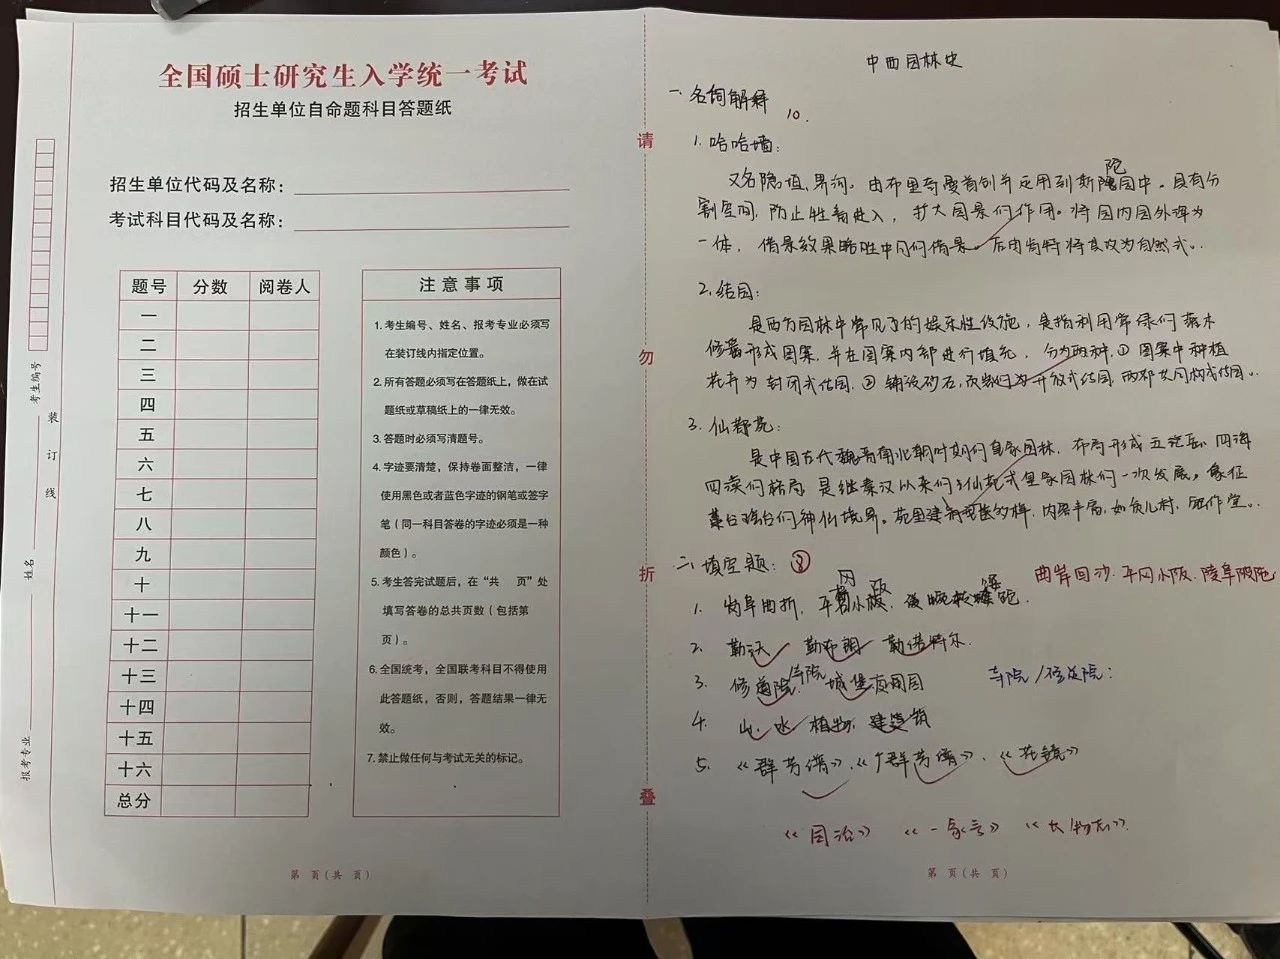 全国硕士研究生入学统一考试
招生单位自命题科目答题纸
招生单位代码及名称：
考试科目代码及名称：
题号 分数 阅卷人
一
二
三
四
五
六
七
八
九
十
十一
十二
十三
十四
十五
十六
总分
注意事项
1.考生编号、姓名、报考专业必须写
在装订线内指定位置。
2.所有答题必须写在答题纸上，做在试
题纸或草稿纸上的一律无效。
3.答题时必须写清题号。
4.字迹要清楚，保持卷面整洁，一律
使用黑色或者蓝色字迹的钢笔或签字
笔（同一科目答卷的字迹必须是一种
颜色）。
5.考生答完试题后，在“共 页”处
填写答卷的总共页数（包括第
页）。
6.全国统考，全国联考科目不得使用
此答题纸，否则，答题结果一律无
效。
7.禁止做任何与考试无关的标记。
第 页（共 页）
考生编号
姓名
报考专业
装
订
线
请
勿
折
叠
中西园林史
一 名词解释 10.
1. 哈哈墙：
又名隐垣，界沟。由布里奇曼首创并运用到斯陀园中。具有分
割空间，防止牲畜进入，扩大园景的作用。将园内园外连为
一体，借景效果略胜中国的借景。后由肯特将其改为自然式。
2. 结园：
是西方园林中常见的娱乐性设施，是指利用常绿的灌木
修剪形成图案，并在图案内部进行填充，分为两种，① 图案中种植
花卉为封闭式结园，② 铺设砂石，为开放式结园，两者共同构成结园。
3. 仙都苑：
是中国古代魏晋南北朝时期的皇家园林，布局形成五岳 四海
四渎的格局 是继秦汉以来的仙苑式皇家园林的一次发展，象征
蓬台瑶台的神仙境界。苑里建筑多样，内容丰富，如贫儿村，
二、填空题： 8
曲岸回沙 平冈小阪 陵阜陂陀
1. 岗阜曲折，平冈小阪，
2. 勒沃 勒布朗 勒诺特尔
3. 修道院 寺院 城堡庭园
寺院/修道院：
4. 山 水 植物 建筑
5. 《群芳谱》、《广群芳谱》、《花镜》
《园冶》 《一家言》 《长物志》
第 页（共 页）